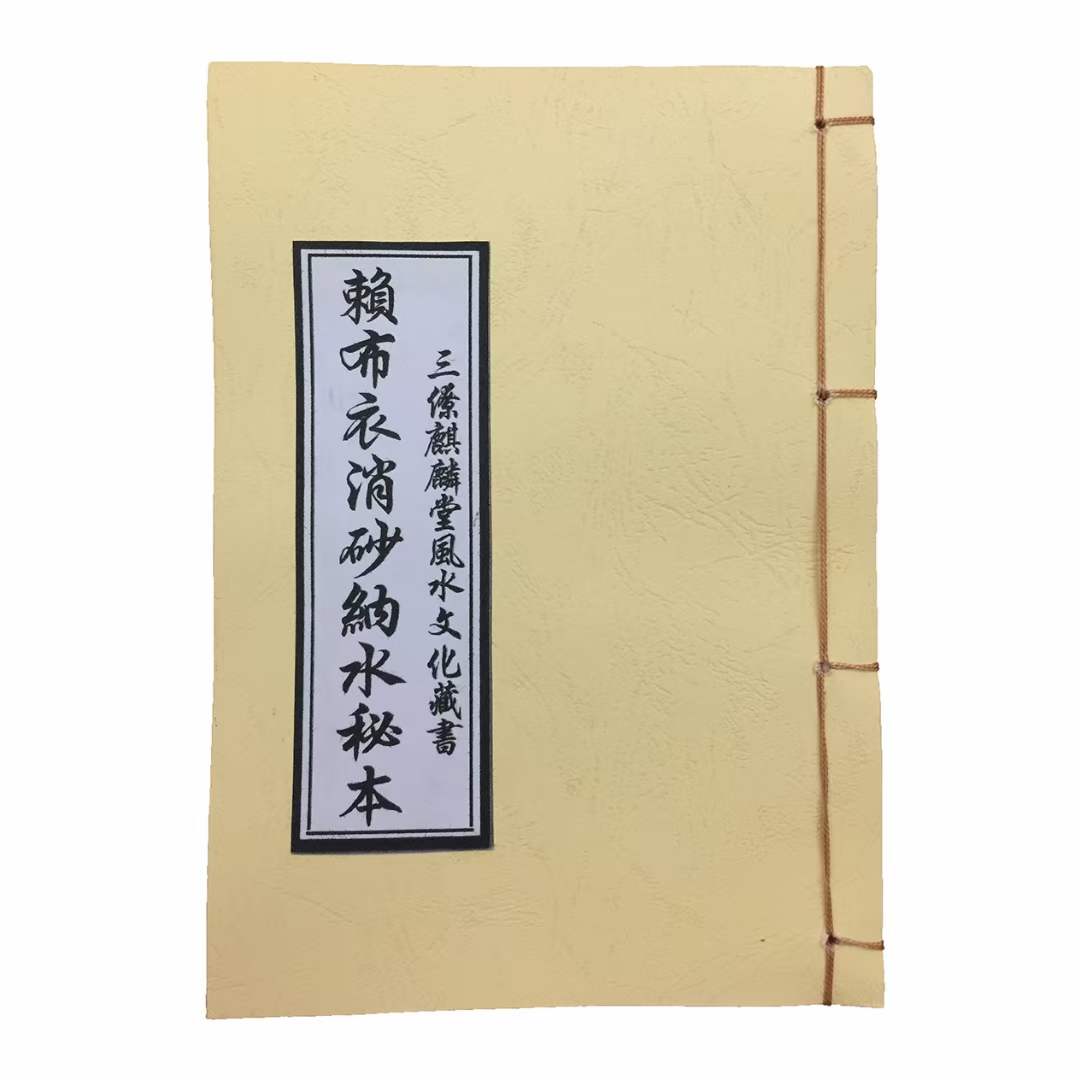 三僚麒麟堂風水文化藏書
賴布衣消砂納水秘本